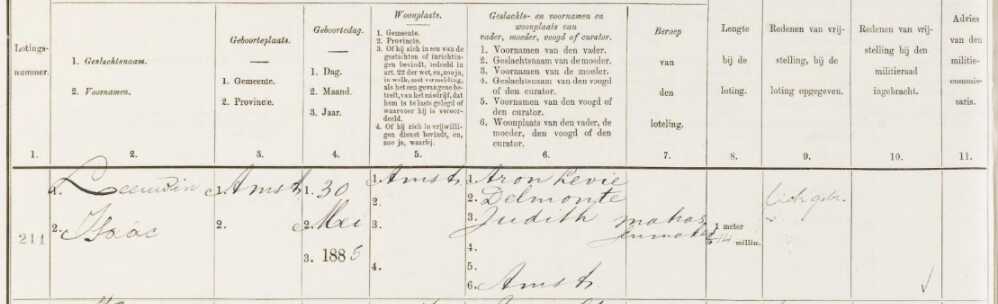 Lotings-
nummer.
1.
1. Geslachtsnaam.
2. Voornamen.
2.
Geboorteplaats.
1. Gemeente.
2. Provincie.
3.
Geboortedag.
1. Dag.
2. Maand.
3. Jaar.
4.
Woonplaats.
1. Gemeente.
2. Provincie.
3. Of hij zich in een van de
gestichten of inrichtingen
bevindt, bedoeld in
art. 22 der wet, en, zoo ja,
in welk, met vermelding,
als het een gevangene be-
treft, van het misdrijf, dat
hem is te laste gelegd of
waarover hij is veroor-
deeld.
4. Of hij zich in vrijwilli-
gen dienst bevindt, en,
zoo ja, waarbij.
5.
Geslachts- en voornamen en
woonplaats van
vader, moeder, voogd of curator.
1. Voornamen van den vader.
2. Geslachtsnaam van de moeder.
3. Voornamen van de moeder.
4. Geslachtsnaam van den voogd
of den curator.
5. Voornamen van den voogd of
den curator.
6. Woonplaats van den vader, de
moeder, den voogd of den
curator.
6.
Beroep
van
den
loteling.
7.
Lengte
bij de
loting.
8.
Redenen van vrij-
stelling, bij de
loting opgegeven.
9.
Redenen van vrij-
stelling bij den
militieraad
ingebracht.
10.
Advies
van den
militie-
commis-
saris.
11.
211
1. Leeuwin
2. Isaäc
1. Amst
2.
1. 30
2. Mei
3. 1885
1. Amst
2.
3.
4.
1. Aron Levie
2. Delmonte
3. Judith
4.
5.
6. Amst
1 meter
millim.